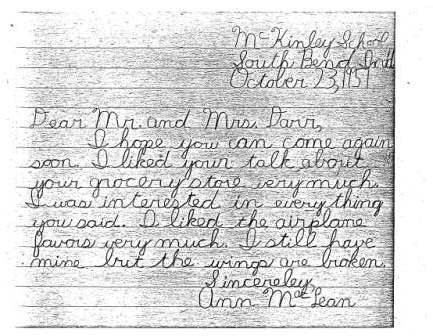 McKinley School
South Bend, Ind.
October 23, 1951
Dear Mr. and Mrs. Darr,
I hope you can come again
soon. I liked your talk about
your grocery store very much.
I was interested in everything
you said. I liked the airplane
favors very much. I still have
mine but the wings are broken.
Sincereley,
Ann MacLean